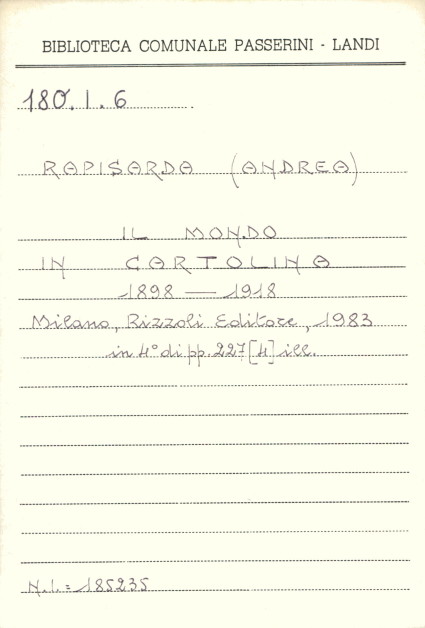 BIBLIOTECA COMUNALE PASSERINI - LANDI
180.I.6
RAPISARDA (ANDREA)
IL MONDO
IN CARTOLINA
1898 — 1918
Milano, Rizzoli Editore, 1983
in 4° di pp. 227 [4] ill.
N.I. = 185235